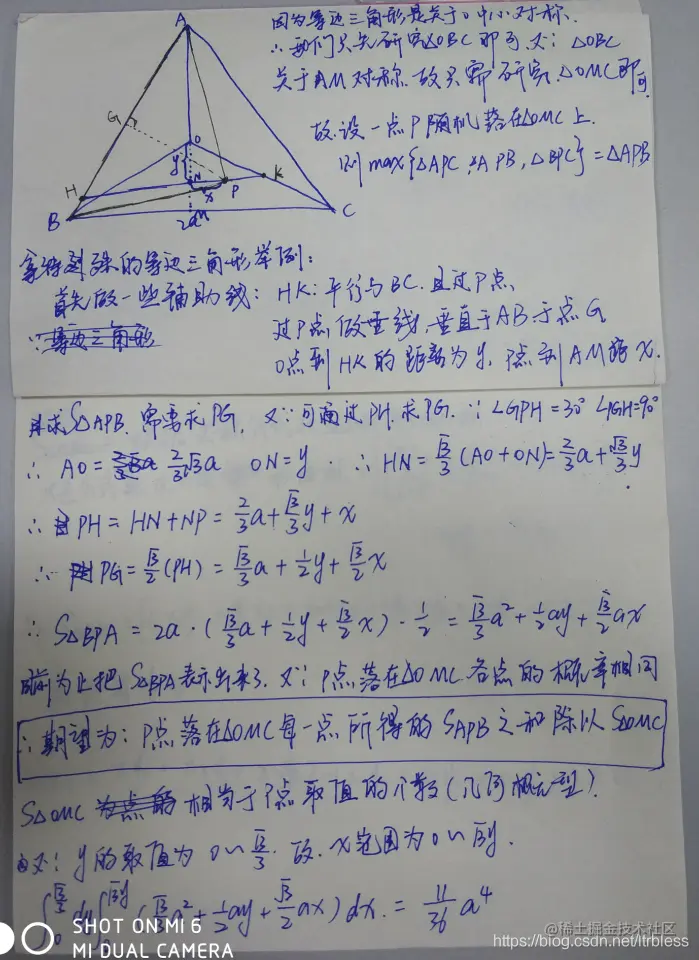 因为等边三角形是关于O中心对称.
∴我们只先研究△OBC即可 又∵△OBC
关于AM对称. 故只需研究△OMC即可
故.设一点P随机落在△OMC上.
则 max{△APC, △APB, △BPC} = △APB
A
G
O
y
H
N
x
P
K
B
2a
M
C
拿特殊的等边三角形举例:
首先做一些辅助线: HK: 平行与BC. 且过P点
∵等边三角形
过P点做垂线.垂直于AB于点G
O点到HK的距离为y, P点到AM距x.
求S△APB. 需要求PG, 又∵可通过PH.求PG. ∵ ∠GPH=30° ∠PGH=90°
∴ AO = 2/3 √3a   ON=y   ∴ HN = √3/3 (AO+ON) = 2/3 a + √3/3 y
∴ PH = HN+NP = 2/3 a + √3/3 y + x
∴ PG = √3/2 (PH) = √3/3 a + 1/2 y + √3/2 x
∴ S△BPA = 2a · (√3/3 a + 1/2 y + √3/2 x) · 1/2 = √3/3 a² + 1/2 ay + √3/2 ax
目前为止把S△BPA表示出来了. 又∵ P点落在△OMC各点的概率相同
∴期望为: P点落在△OMC每一点所得的SAPB之和除以S△OMC
S△OMC 为点的 相当于P点取值的个数(几何概率型).
又∵ y的取值为 0~√3/3. 故. x范围为0~√3y.
∫₀^(√3/3) dy ∫₀^(√3y) (√3/3 a² + 1/2 ay + √3/2 ax) dx. = 11/36 a⁴
SHOT ON MI 6
MI DUAL CAMERA
@稀土掘金技术社区
https://blog.csdn.net/ltrbless